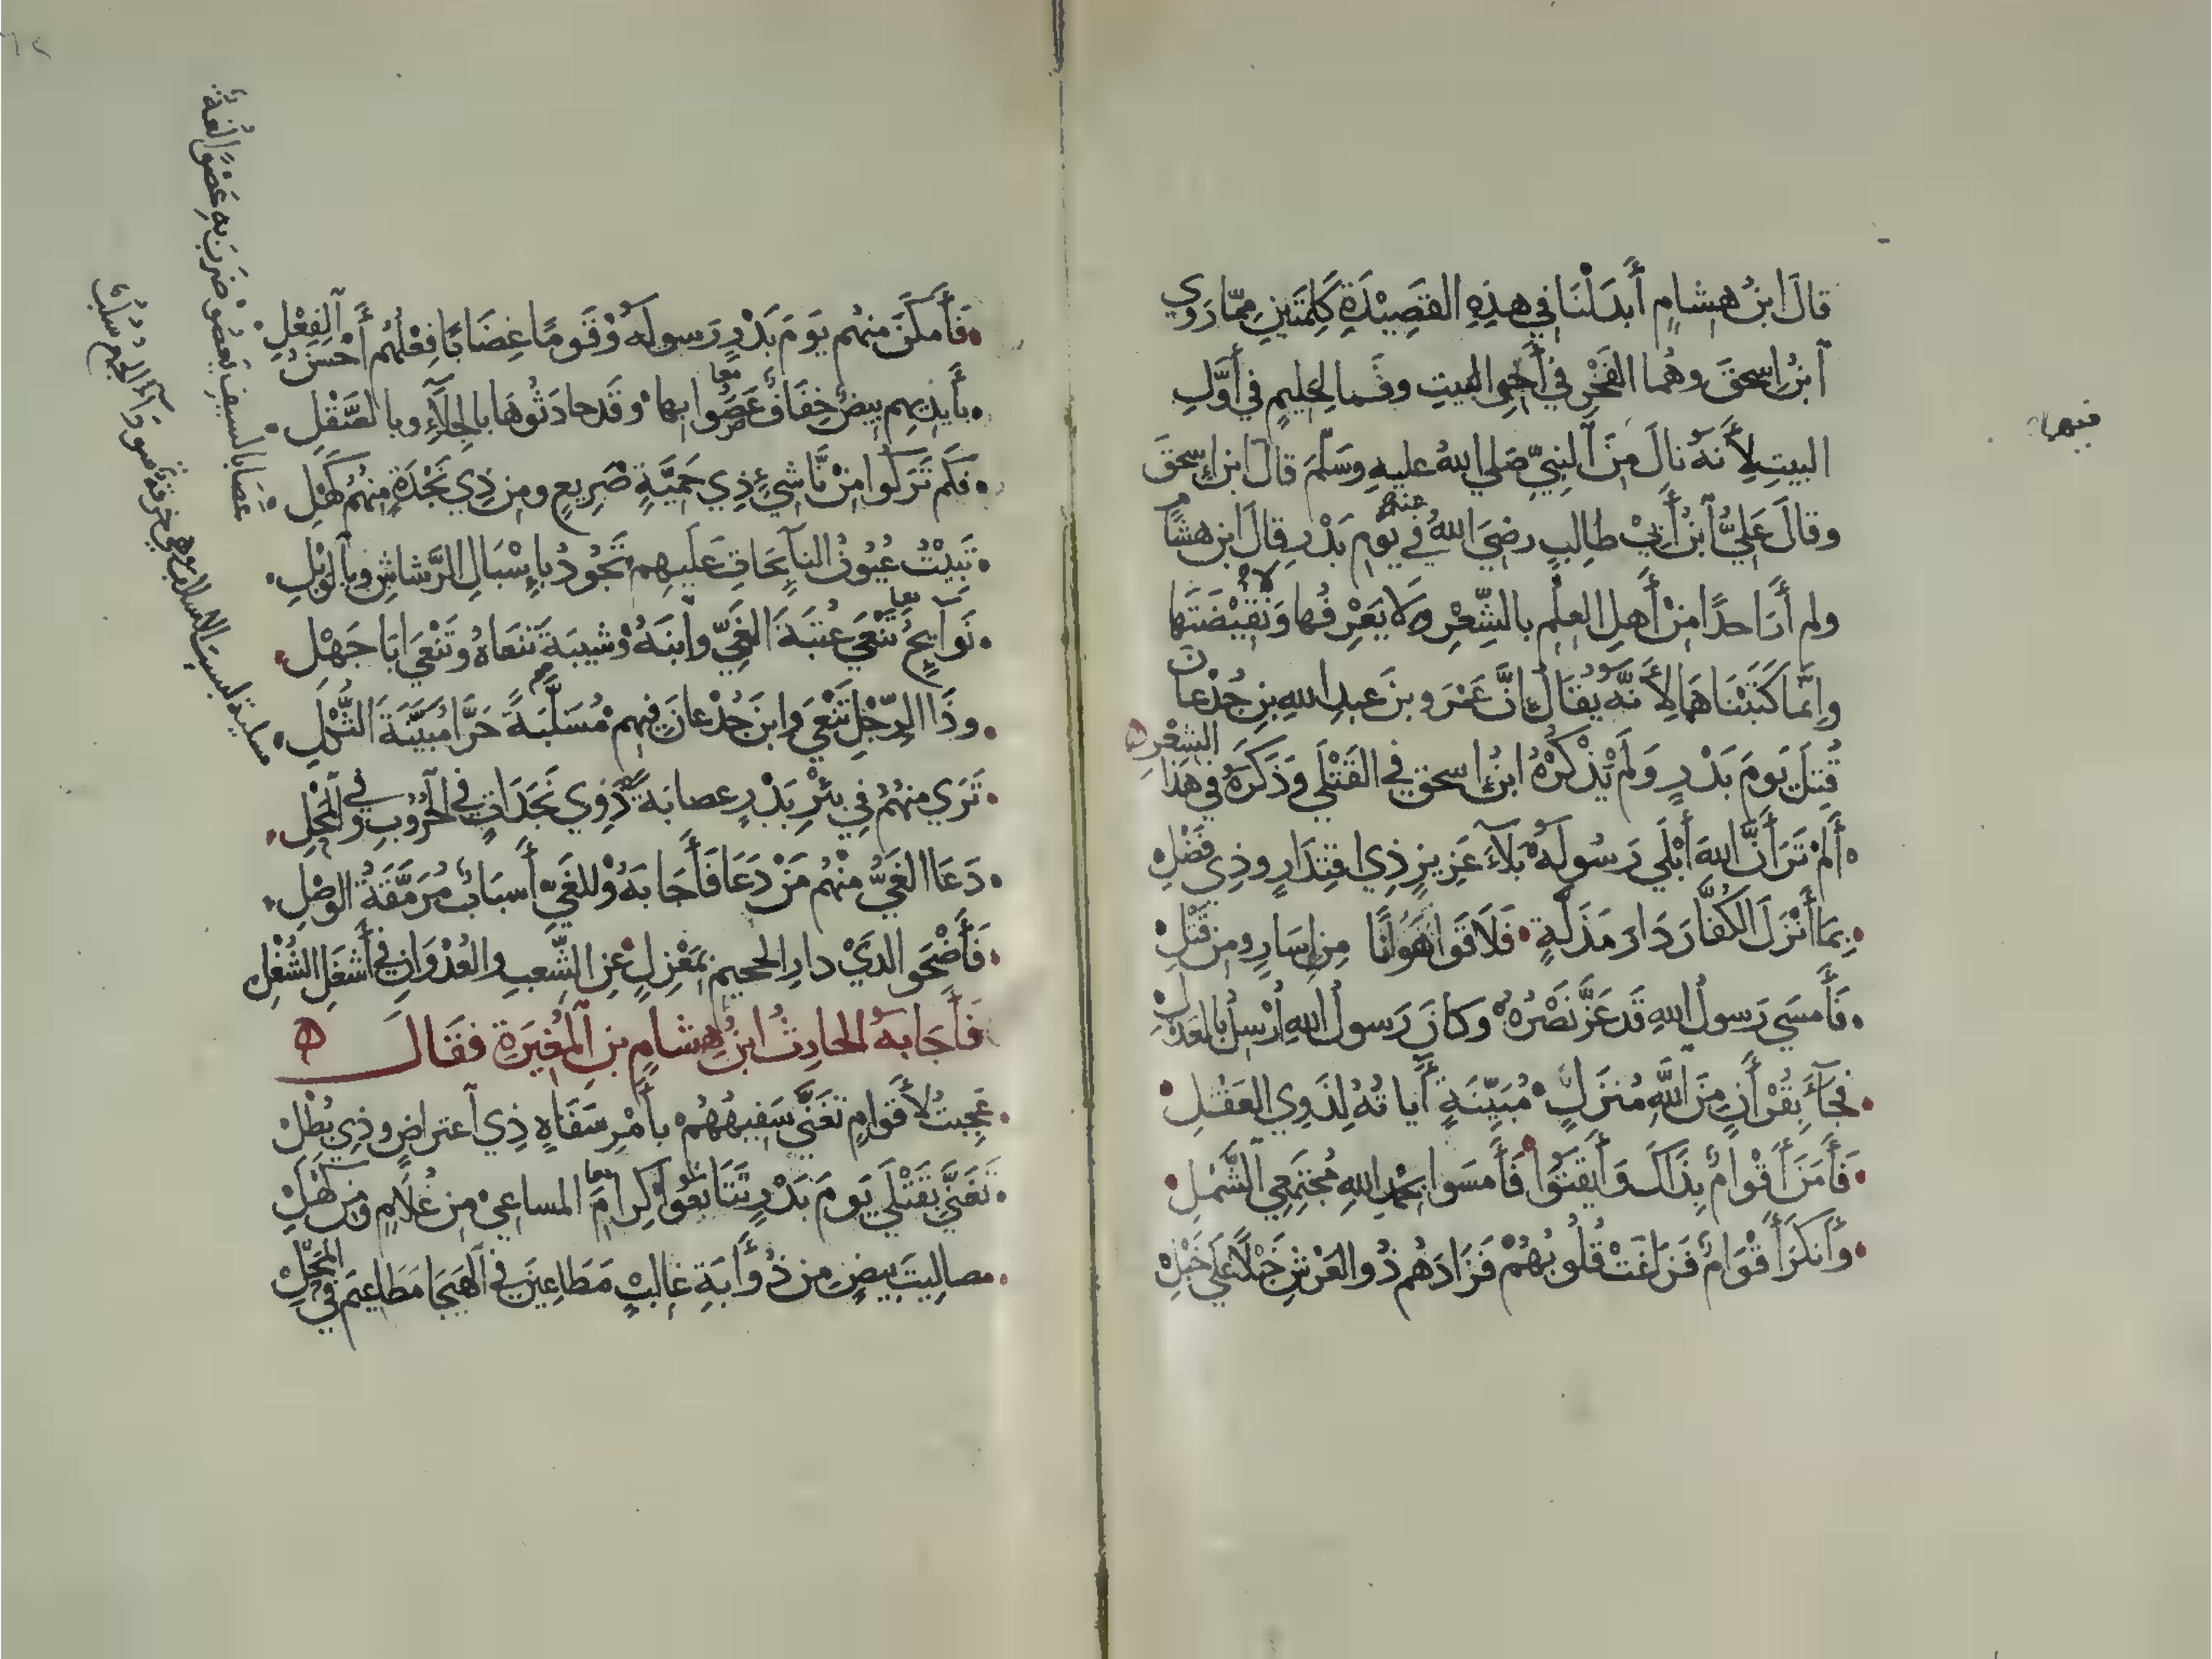 قالَ ابنُ هشامٍ أَبدَلْنَا في هذِهِ القَصِيْدَةِ كَلِمَتَينِ مِمّا رَوَي
ٱبنُ اسحقَ وهُما الفَخْرِ في أَخِرِ البيتِ وفَما لِحَليمٍ في أَوَّلِ
البيتِ لِأَنهُ نالَ مِنَ ٱلنبِيِّ صَلي اللهُ عليهِ وسَلَّمَ قالَ ابن إسحقَ
وقالَ عَليُّ ٱبنُ أَبيْ طالِبٍ رضيَ اللهُ عنه في يومِ بَدْرٍ قالَ ابن هشامٍ
ولم أَرَ احدًا مِنْ أَهلِ العِلْمِ بالشِّعْرِ يَعْرِفُها وَلا نَقِيْضَتَها
وإنَّما كَتَبْنَاهما لِأَنَّهُ يُقَالُ إِنَّ عَمْرَو بنَ عبدِ اللهِ بنِ جُدْعانَ
قُتِلَ يَومَ بَدْرٍ وَلَمْ يَذْكُرْهُ ابنُ اسحق في القَتْلَي وَذَكَرَهُ في هذا الشِعْرِ
أَلَمْ تَرَ أَنَّ اللهَ أَبْلَي رَسُولَهُ بَلَآءَ عَزِيزٍ ذِي اقتِدَارٍ وذِي فَضْلِ
بِمَا أَنْزَلَ الكُفَّارَ دَارَ مَذَلَّةٍ فَلَاقَوا هَوَانًا مِن إِسَارٍ ومِن قَتْلِ
فَأَمسَي رَسولُ اللهِ قَد عَزَّ نَصْرُهُ وَكانَ رَسولُ اللهِ أُرْسِلَ بالعَدْلِ
فجَآءَ بِفُرْقَانٍ مِنَ اللَّهِ مُنزَلٍ مُبَيِّنَةٍ أَيَاتُهُ لِذَوِي العَقْلِ
فَأَمَنَ أَقْوامٌ بِذَاكَ وَأَيقَنَوا فَأَمسَوا بحمْدِ اللهِ مُجتَمِعِي الشَّمْلِ
وَأَنكَرَ أَقْوَامٌ فَزَاغَتْ قُلُوبُهُمْ فَزَادَهُم ذُو العَرْشِ خَبْلًا عَلَي خَبْلِ
فيها
فَأَمكَنَ منهُم يَومَ بَدْرٍ رَسولَهُ وَقَومًا غِضَابًا فِعْلُهُم أَحْسَنُ ٱلفِعْلِ
بأَيدِيهِم بِيضٌ خِفَافٌ عَصُوا بها وقَد حادَثُوهَا بالجِلَآءِ وبالصَّقْلِ
فكَم تَرَكُوا مِنْ نَّاشِيءٍ ذِي حَمِيَّةٍ صَرِيعٍ ومِن ذِي نَجْدَةٍ مِنهُم كَهْلِ
تَبِيْتُ عُيُونُ النآئِحَاتِ عَلَيهِم تَجُودُ بإِسْبَالِ الرَّشاشِ وبالوَبْلِ
نَوَآئِحُ تَنْعَي عُتبَةَ الغَيِّ وابنَهُ وشيبَةَ تَنعَاهُ وتَنْعَي ابَا جَهْلِ
وذَا الرِّجْلِ تَنْعَي وابنَ جُدْعانَ فيهِم مُسَلَّبَةً حَرَّا مُبَيَّنَةَ الثُّكْلِ
تَرَي منهُمُ في بِئْرِ بَدْرٍ عصابَةً ذَوِي نَجَدَاتٍ في الحُرُوبِ وفي ٱلمَحْلِ
دَعَا الغَيُّ منْهُم مَنْ دَعَا فَأَجَابَهُ وللغَيِّ أَسبَابٌ مُرَمَّقَةُ الوَصْلِ
فَأَضْحَو الدَيْ دارِ الجحيمِ بمَعْزِلٍ عنِ الشَّغبِ والعُدْوَانِ في أَشغَلِ الشُّغْلِ
فَأَجَابَهُ الحارِثُ ابنُ هِشامٍ بنِ ٱلمُغِيَرةِ فقَالَ
عَجِبتُ لأَقَوامٍ تَغَنَّي سَفِيهُهُمْ بأَمْرٍ سَفَاهٍ ذِي ٱعتراضٍ وذِي بُطْلِ
تَغَنَّي بقَتْلَي يَومَ بَدْرٍ تَتَابَعُوا كِرامِ المساعِي مِن غُلَامٍ ومِن كَهْلِ
مصالِيتَ بِيضٍ مِن ذُوَأبَةِ غالِبٍ مَطَاعِينَ في ٱلهَيجَا مَطَاعِيمَ في المَحْلِ
عَصَا بالسيفِ يَعصُو ضَرَبَ به عَصْوًا لغةٌ
مسلبة لبست السلاب وهي خرقة سودآء الجمع سلب